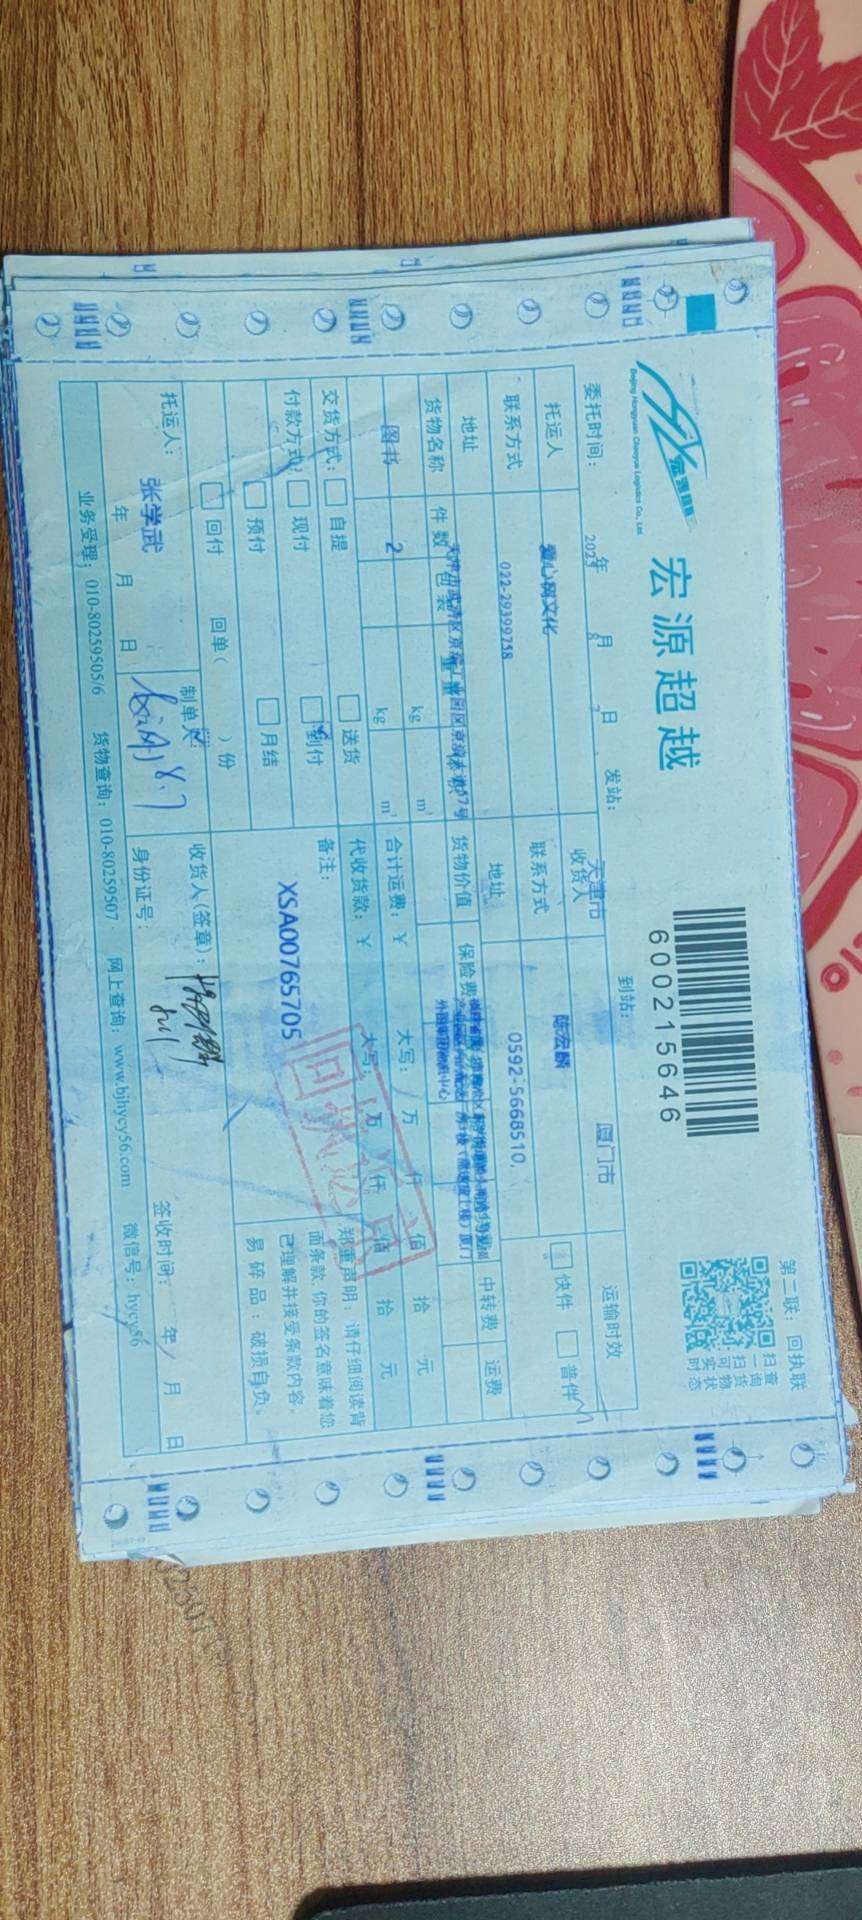 第二联：回执联
宏源超越
Beijing Hongyuan Chaoyue Logistics Co., Ltd.
600215646
扫一扫 可实时
查询货物状态
委托时间： 2023年 8月 7日 发站： 天津市 到站： 厦门市 运输时效
托运人 爱心树文化 收货人 陈宏麟 快件 普件
联系方式 022-29399758 联系方式 0592-5668510,
地址 天津市武清区京滨工业园区京滨大道57号 地址
外图集团物流中心
货物名称 件数 包装 重量 体积 货物价值 保险费 中转费 运费
图书 2 kg m³
kg m³
合计运费：￥ 大写： 万 仟 佰 拾 元
代收货款：￥ 大写： 万 仟 佰 拾 元
交货方式： 自提 送货
付款方式： 现付 到付
预付 月结
回付 回单（ ）份
备注：
XSA00765705
郑重声明：请仔细阅读背
面条款，你的签名意味着您
已理解并接受条款内容。
易碎品：破损自负。
托运人： 张学武 制单人： 8.7
年 月 日
收货人(签章)：
身份证号： 签收时间： 年 月 日
业务受理：010-80259505/6 货物查询：010-80259507 网上查询：www.bjhycy56.com 微信号：hycy56